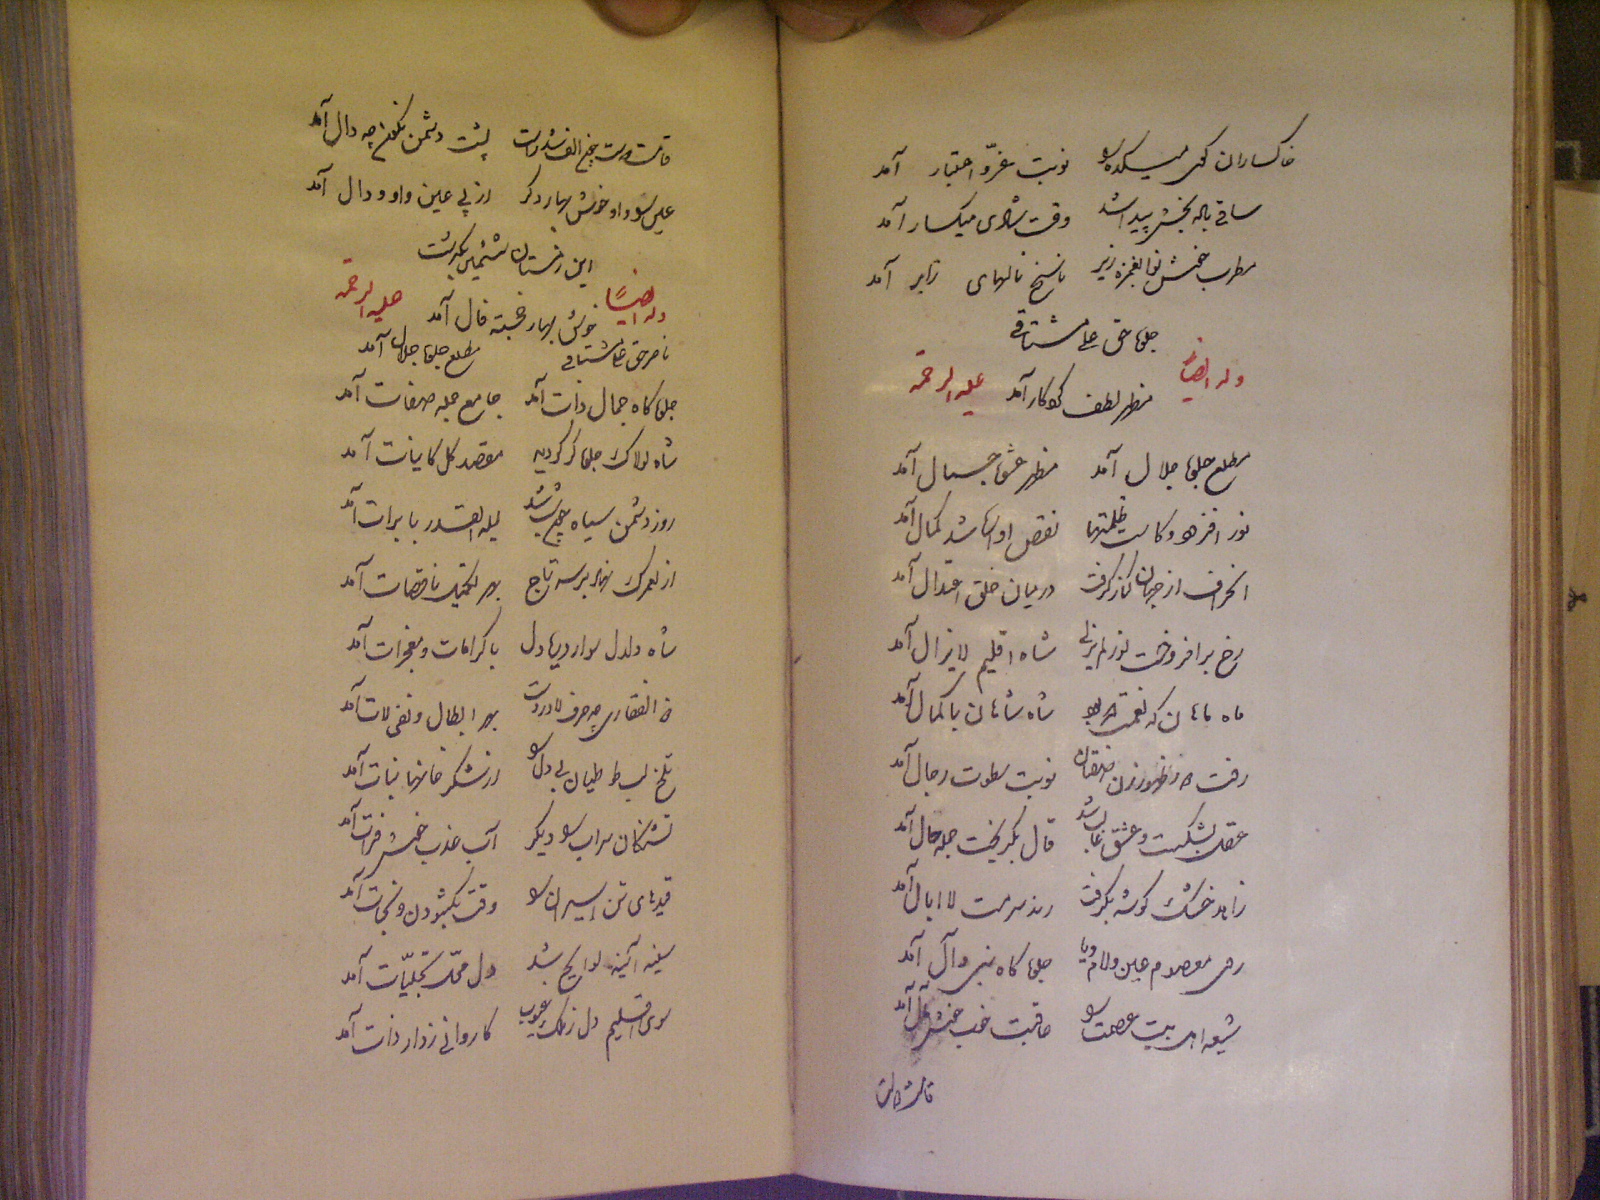 خاکساران کوی میکده را نوبت عزّ و اعتبار آمد
ساقی باله بخش پیدا شد وقت شادی میکسار آمد
مطرب خوش نوا بغمزه زیر ناسخ نالهای زایر آمد
جلوه حق علی مشتاقی
وله ایضاً مظهر لطف کردکار آمد علیه الرحمه
مطلع جلوه جلال آمد مظهر عشق و جمال آمد
نور افزود و کاست ظلمتها نقص اوانها شد کمال آمد
انحراف از جهان کنار گرفت در میان خلق اعتدال آمد
رخ برافروخت نور لم یزلی شاه اقلیم لا یزال آمد
ماه ماهان که نعمت شاه شاهان با کمال آمد
رفت ظهور زن صفتان نوبت سطوت رجال آمد
عقل بشکست و عشق غالب شد قال بگریخت جمله حال آمد
زاهد خشک گوشه بگرفت رند سرمست لا ابال آمد
عین و لام و یا جلوه گاه نبی و آل آمد
شیعه اهل بیت عصمت را عاقبت خوب خوش مآل آمد
قامت دوست
قامت دوست چون الف شد راست پشت دشمن نگون چه دال آمد
عین و واو خوش بهار دگر از پی عین و واو و دال آمد
این زمستان شئمین بگذشت
وله ایضاً خوش بهار خجسته فال آمد علیه الرحمه
ناصر حق علی مشتاقی مطلع جلوه جلال آمد
جلوه گاه جمال ذات آمد جامع جمله صفات آمد
شاه لولاک جلوه گر گردید مقصد کل کاینات آمد
روز دشمن سیاه چون شب شد لیله القدر با برات آمد
از لعمرک نهاد بر سر تاج بهر تکمیل ناقصات آمد
شاه دلدل سوار دریا دل با کرامات و معجزات آمد
ذو الفقاری چه حرف لا در دست بهر ابطال و نفی لات آمد
تلخ بی دل را از شکر خانها نبات آمد
تشنگان سراب را دیگر آب عذب خوش فرات آمد
قیدهای تن اسیران را وقت بگشودن و نجات آمد
سینه آئینه لوایح شد دل محل تجلیّات آمد
سوی اقلیم دل ز ملک غیوب کاروانی ز دار ذات آمد